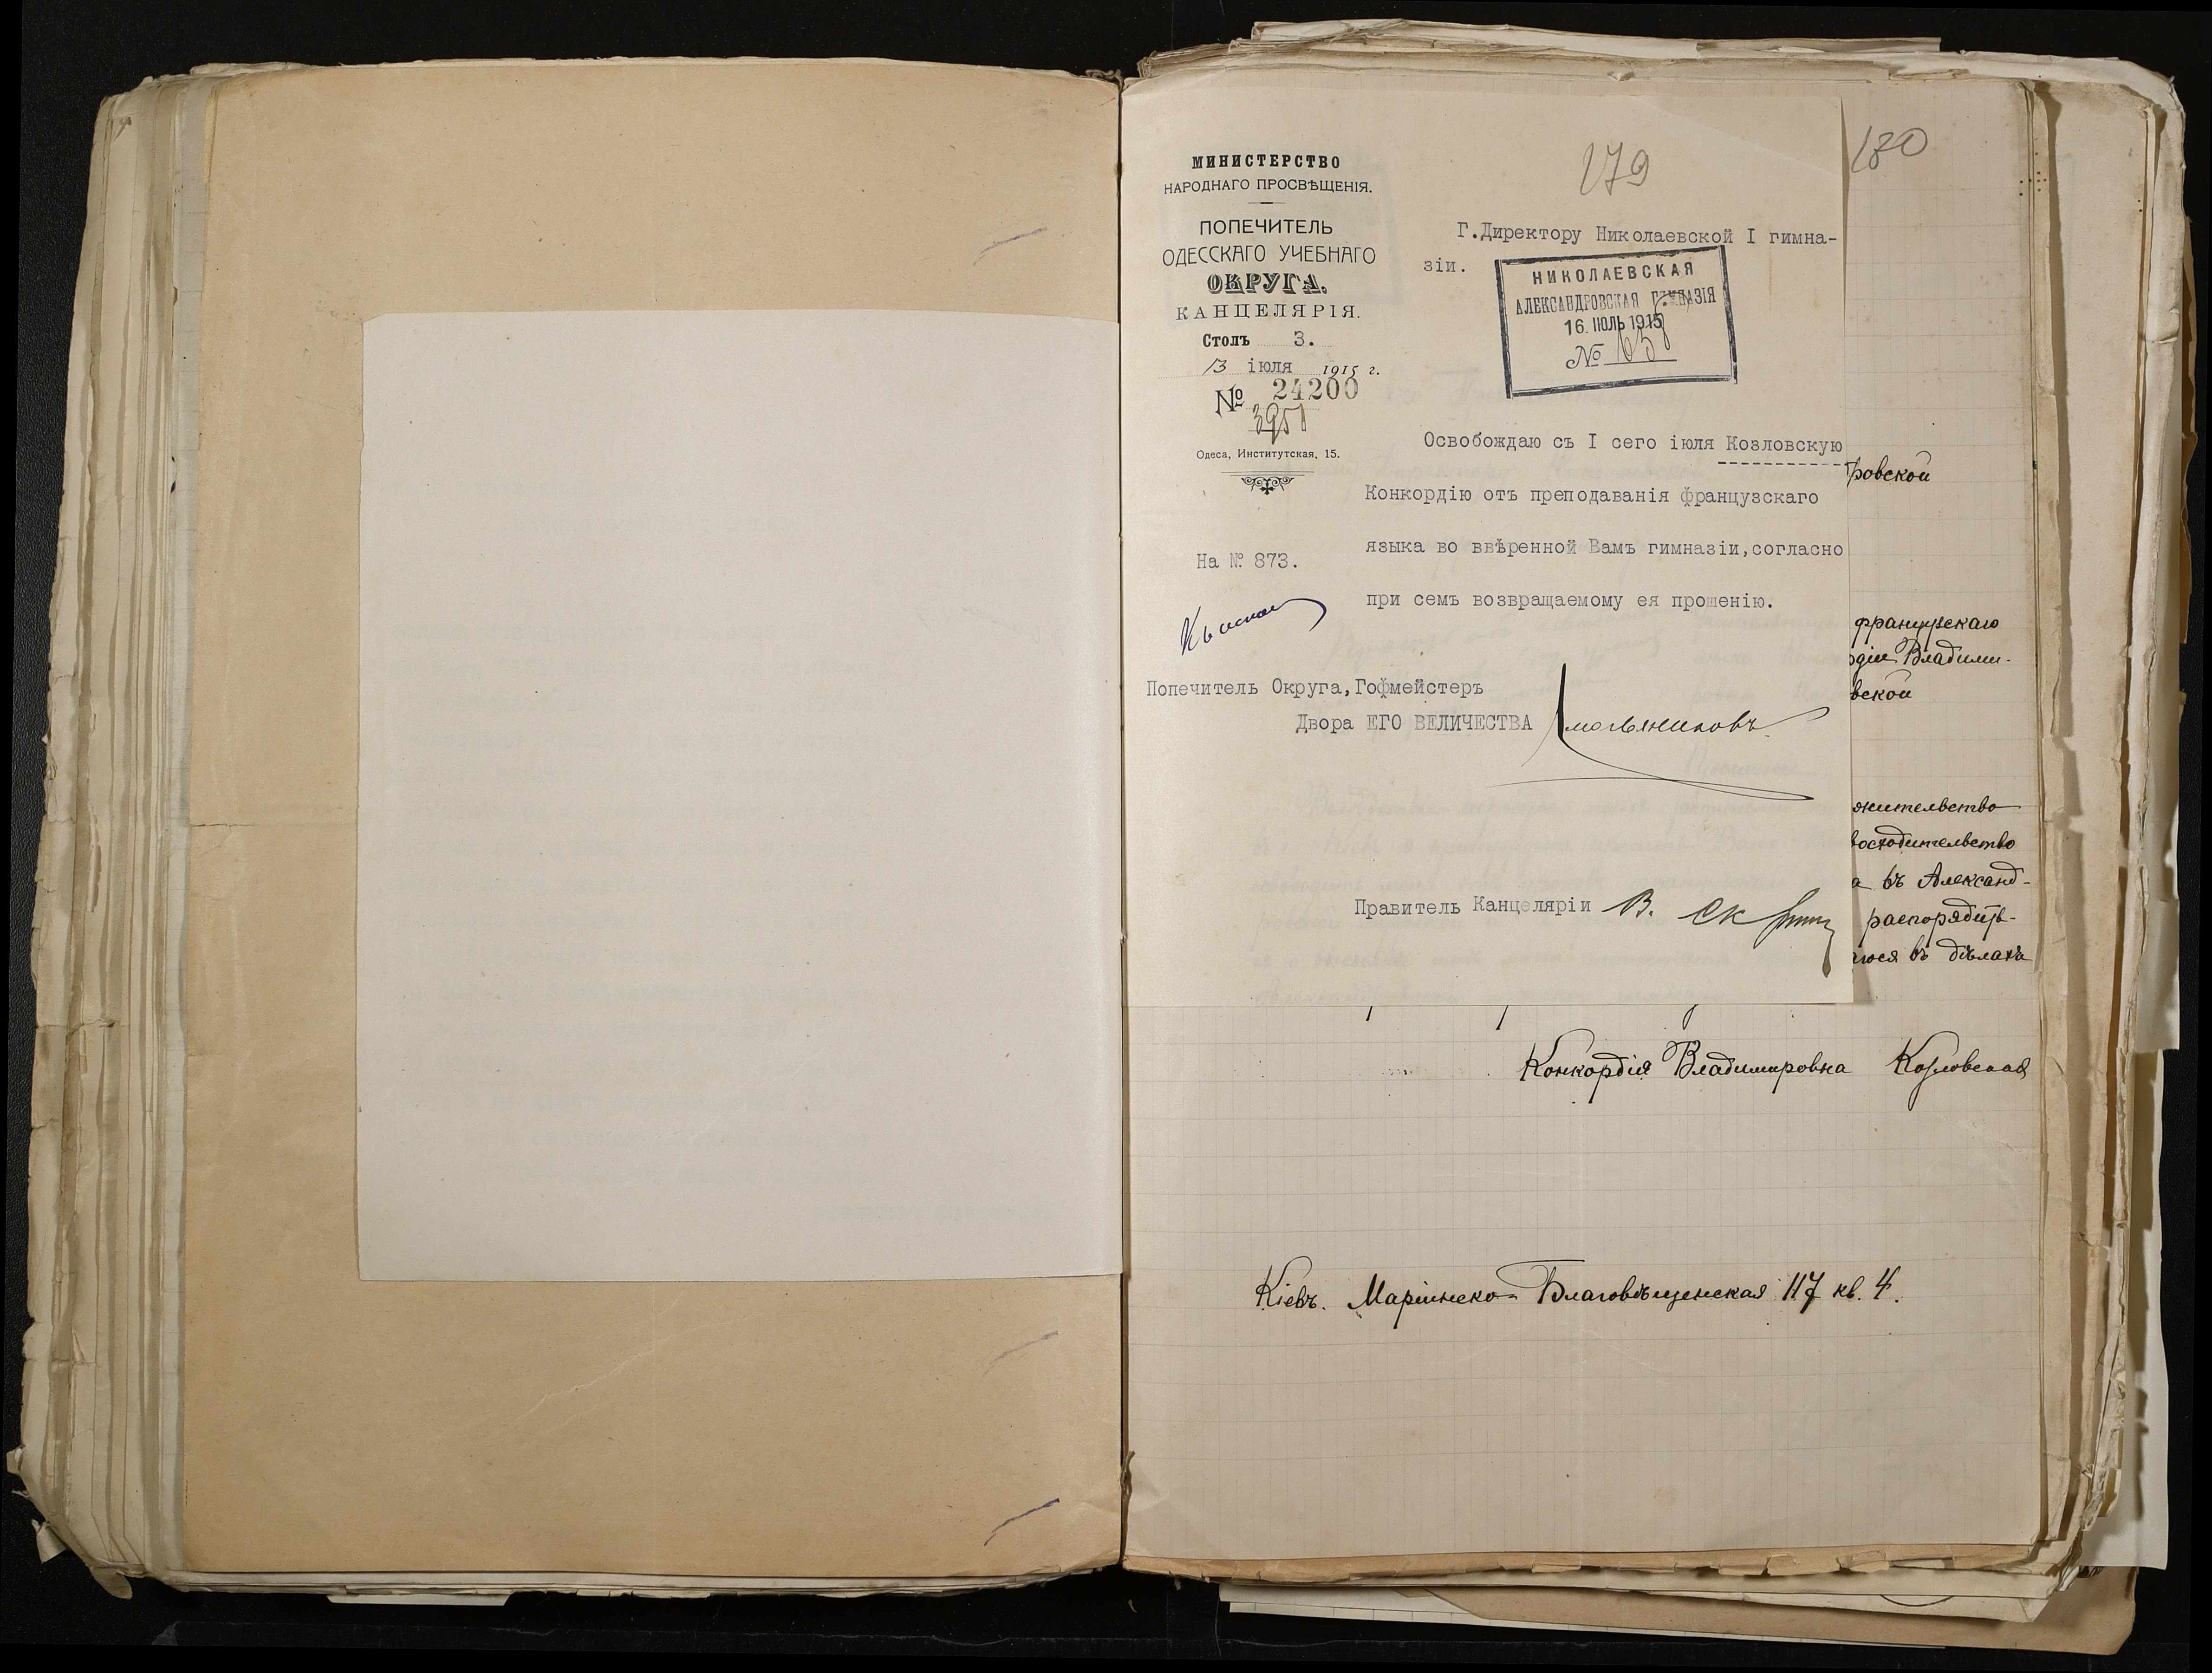 179
180
МИНИСТЕРСТВО
НАРОДНАГО ПРОСВѢЩЕНІЯ.
ПОПЕЧИТЕЛЬ
ОДЕССКАГО УЧЕБНАГО
ОКРУГА.
КАНЦЕЛЯРІЯ.
Столъ 3.
13 іюля 1915 г.
№ 24200
3951
Одеса, Институтская, 15.
На № 873.
Г.Директору Николаевской I гимна-
зіи.
НИКОЛАЕВСКАЯ
АЛЕКСАНДРОВСКАЯ ГИМНАЗІЯ
16. ІЮЛЬ 1915
№
Освобождаю съ I сего іюля Козловскую
Конкордію отъ преподаванія французскаго
языка во ввѣренной Вамъ гимназіи,согласно
при семъ возвращаемому ея прошенію.
Попечитель Округа,Гофмейстеръ
Двора ЕГО ВЕЛИЧЕСТВА
Правитель Канцеляріи В.
ровской
французскаго
рдіи Владими-
вской
жительство
восходительство
а въ Александ-
распорядит-
щіеся въ дѣлахъ
Конкордія Владимировна Козловская
Кіевъ. Маріинско-Благовѣщенская 117 кв. 4.